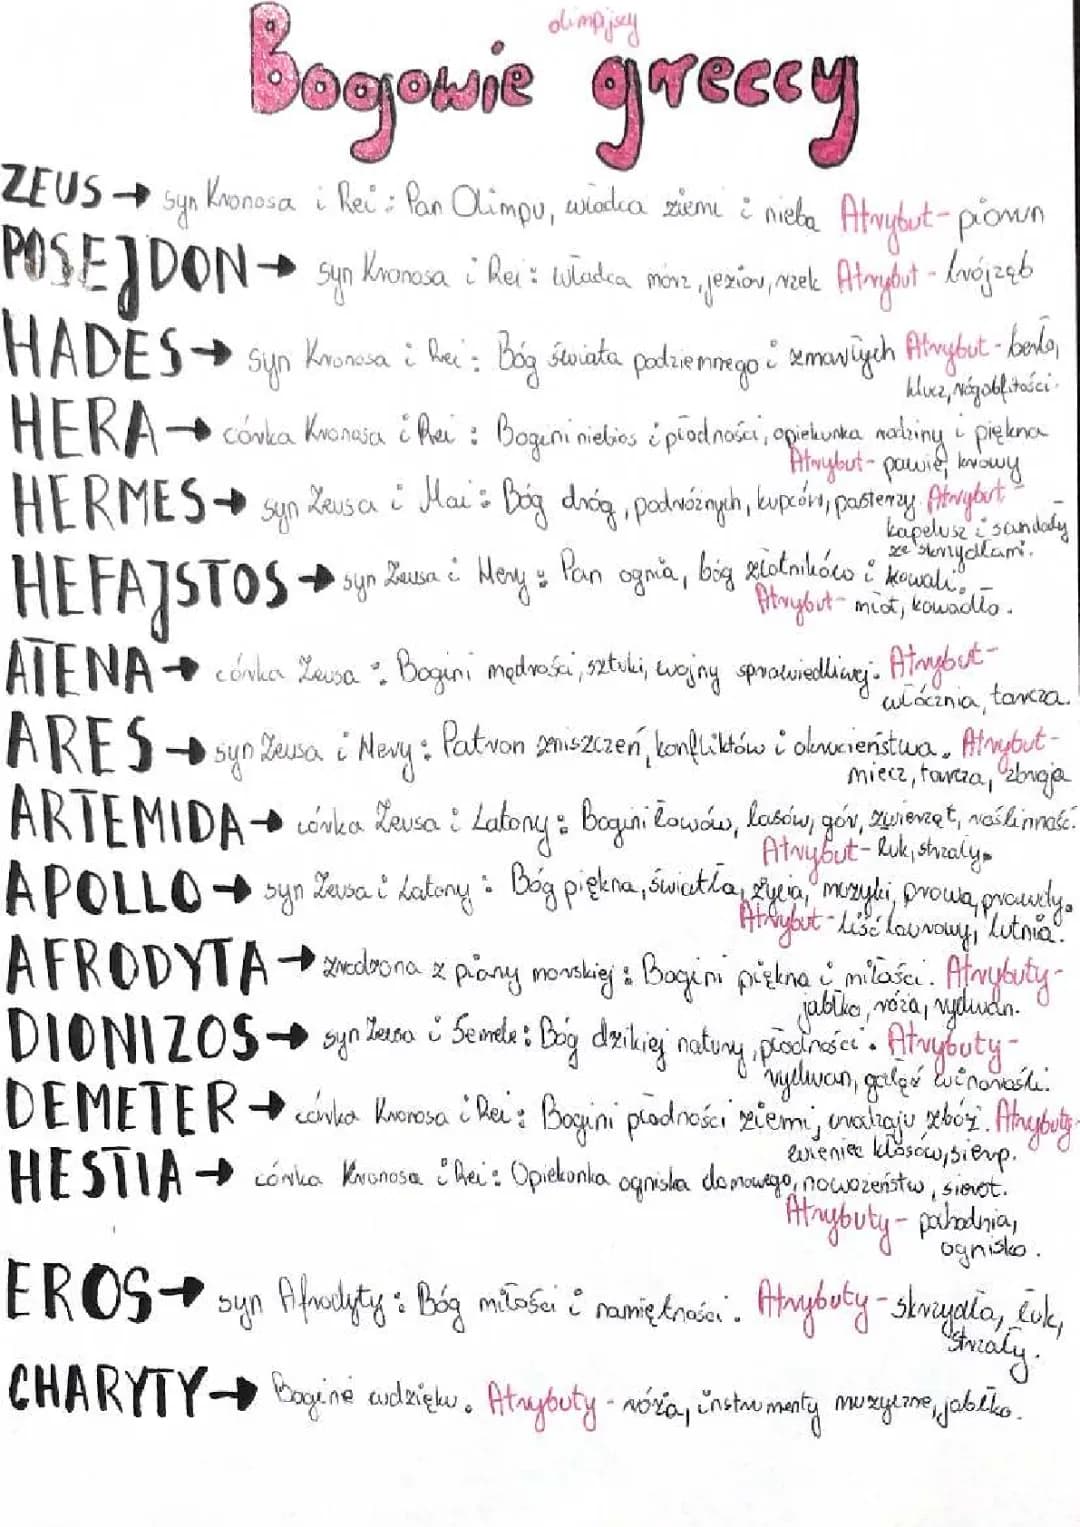 olimpijscy
Bogowie greccy
ZEUS → syn Kronosa i Rei : Pan Olimpu, władca ziemi i nieba Atrybut - piorun
POSEJDON → syn Kronosa i Rei : władca mórz, jezior, rzek Atrybut - trójząb
HADES → syn Kronosa i Rei : Bóg świata podziemnego i zmarłych Atrybut - berło,
klucz, róg obfitości.
HERA → córka Kronosa i Rei : Bogini niebios i płodności, opiekunka rodziny i piękna
Atrybut - pawie, krowy
HERMES → syn Zeusa i Mai : Bóg dróg, podróżnych, kupców, pasterzy. Atrybut -
kapelusz i sandały
ze skrzydłami.
HEFAJSTOS → syn Zeusa i Hery : Pan ognia, bóg złotników i kowali.
Atrybut - młot, kowadło.
ATENA → córka Zeusa : Bogini mądrości, sztuki, wojny sprawiedliwej. Atrybut -
włócznia, tarcza.
ARES → syn Zeusa i Hery : Patron zniszczeń, konfliktów i okrucieństwa. Atrybut -
miecz, tarcza, zbroja
ARTEMIDA → córka Zeusa i Latony : Bogini łowów, lasów, gór, zwierząt, roślinność.
Atrybut - łuk, strzały.
APOLLO → syn Zeusa i Latony : Bóg piękna, światła, życia, muzyki, prawa, prawdy.
Atrybut - liść laurowy, lutnia.
AFRODYTA → zrodzona z piany morskiej : Bogini piękna i miłości. Atrybuty -
jabłko, róża, rydwan.
DIONIZOS → syn Zeusa i Semele : Bóg dzikiej natury, płodności. Atrybuty -
rydwan, gałęź winorośli.
DEMETER → córka Kronosa i Rei : Bogini płodności ziemi, urodzaju zbóż. Atrybuty -
wieniec kłosów, sierp.
HESTIA → córka Kronosa i Rei : Opiekunka ogniska domowego, nowożeństw, sierot.
Atrybuty - pochodnia,
ognisko.
EROS → syn Afrodyty : Bóg miłości i namiętności. Atrybuty - skrzydła, łuk,
strzały.
CHARYTY → Boginie wdzięku. Atrybuty - róża, instrumenty muzyczne, jabłko.